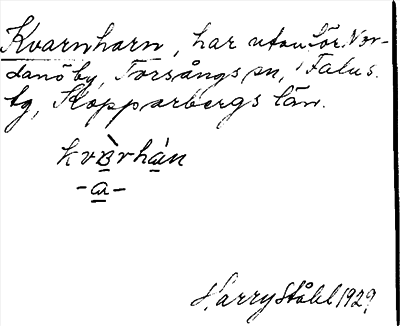 Kvarnharn, har utanför Nor-
danö by, Torsångs sn, Falu s.
tg, Kopparbergs län.
kvàrhán
-a-
Harry Ståhl 1929